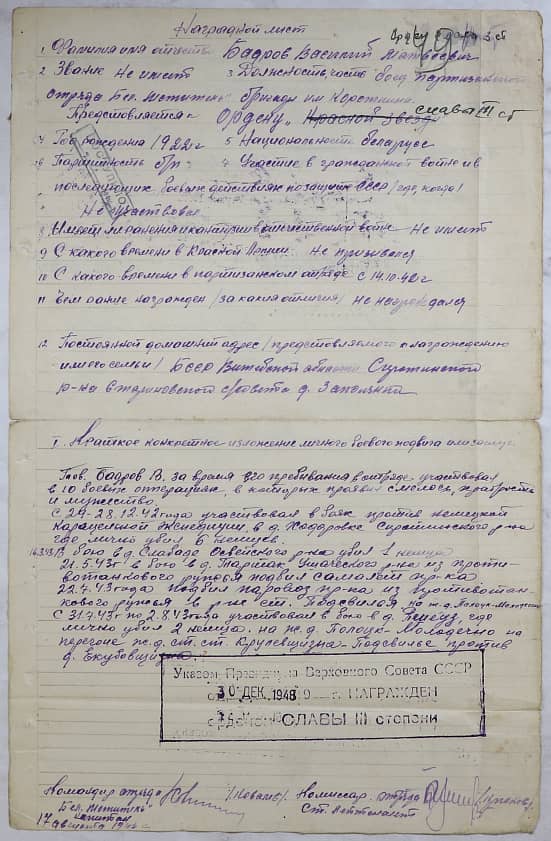 Наградной лист
Ордену Слава 3 ст
1. Фамилия имя отчество Бадров Василий Матвеевич
2 Звание Не имеет 3 Должность, часть боец Партизанского
отряда Бел. Мститель бригады им Короткина
Представляется к Ордену „Красной Звезды слава III ст
7 Год рождения 1922г 5 Национальность беларусс
6 Партийность б/п 4 Участие в гражданской войне и
последующих боевых действиях по защите СССР /где, когда/
Не участвовал
8 Имеет ли ранения и контузии в отечественной войне Не имеет
9 С какого времени в Красной Армии Не призывался
10 С какого времени в партизанском отряде с 14.10.42г
11 Чем ранее награжден /за какия отличия/ Не награждался
12. Постоянной домашний адрес /представляемого к награждению
или его семьи/ БССР Витебской области Сиротинского
р-на Стариновского с/совета д.
I. Краткое конкретное изложение личного боевого подвига или заслуг
Тов. Бадров В. за время его пребывания в отряде участвовал
в 10 боевых операциях, в которых проявил смелось, храбрость
и мужество
С 24-28.12.42года участвовал в боях против немецкой
карательной экспедиции, в д. Хадоровке Сиротинского р-на
где лично убил 6 немцев.
В бою в д. Слабода р-на убил 1 немца
21.5.43г в бою в д. Ушачского р-на из проти-
вотанкового ружья подбил самалёт пр-ка
22.7.43года подбил паровоз пр-ка из противотан-
кового ружья в р-не ст. Подсвилья на ж.д. Полоцк-Молодечно
С 31.7.43г по 2.8.43года участвовал в бою в д. где
лично убил 2 немца. на ж.д. Полоцк-Молодечно на
перегоне ж.д. ст. ст. Крулевщизна-Подсвилье против
д. Екубовщина.
Указом Президиума Верховного Совета СССР
30 ДЕК 1948 г. НАГРАЖДЕН
орденом СЛАВЫ III степени
Командир отряда Комиссар отряда
Бел. Мститель Ст. Лейтенант
капитан
17 августа